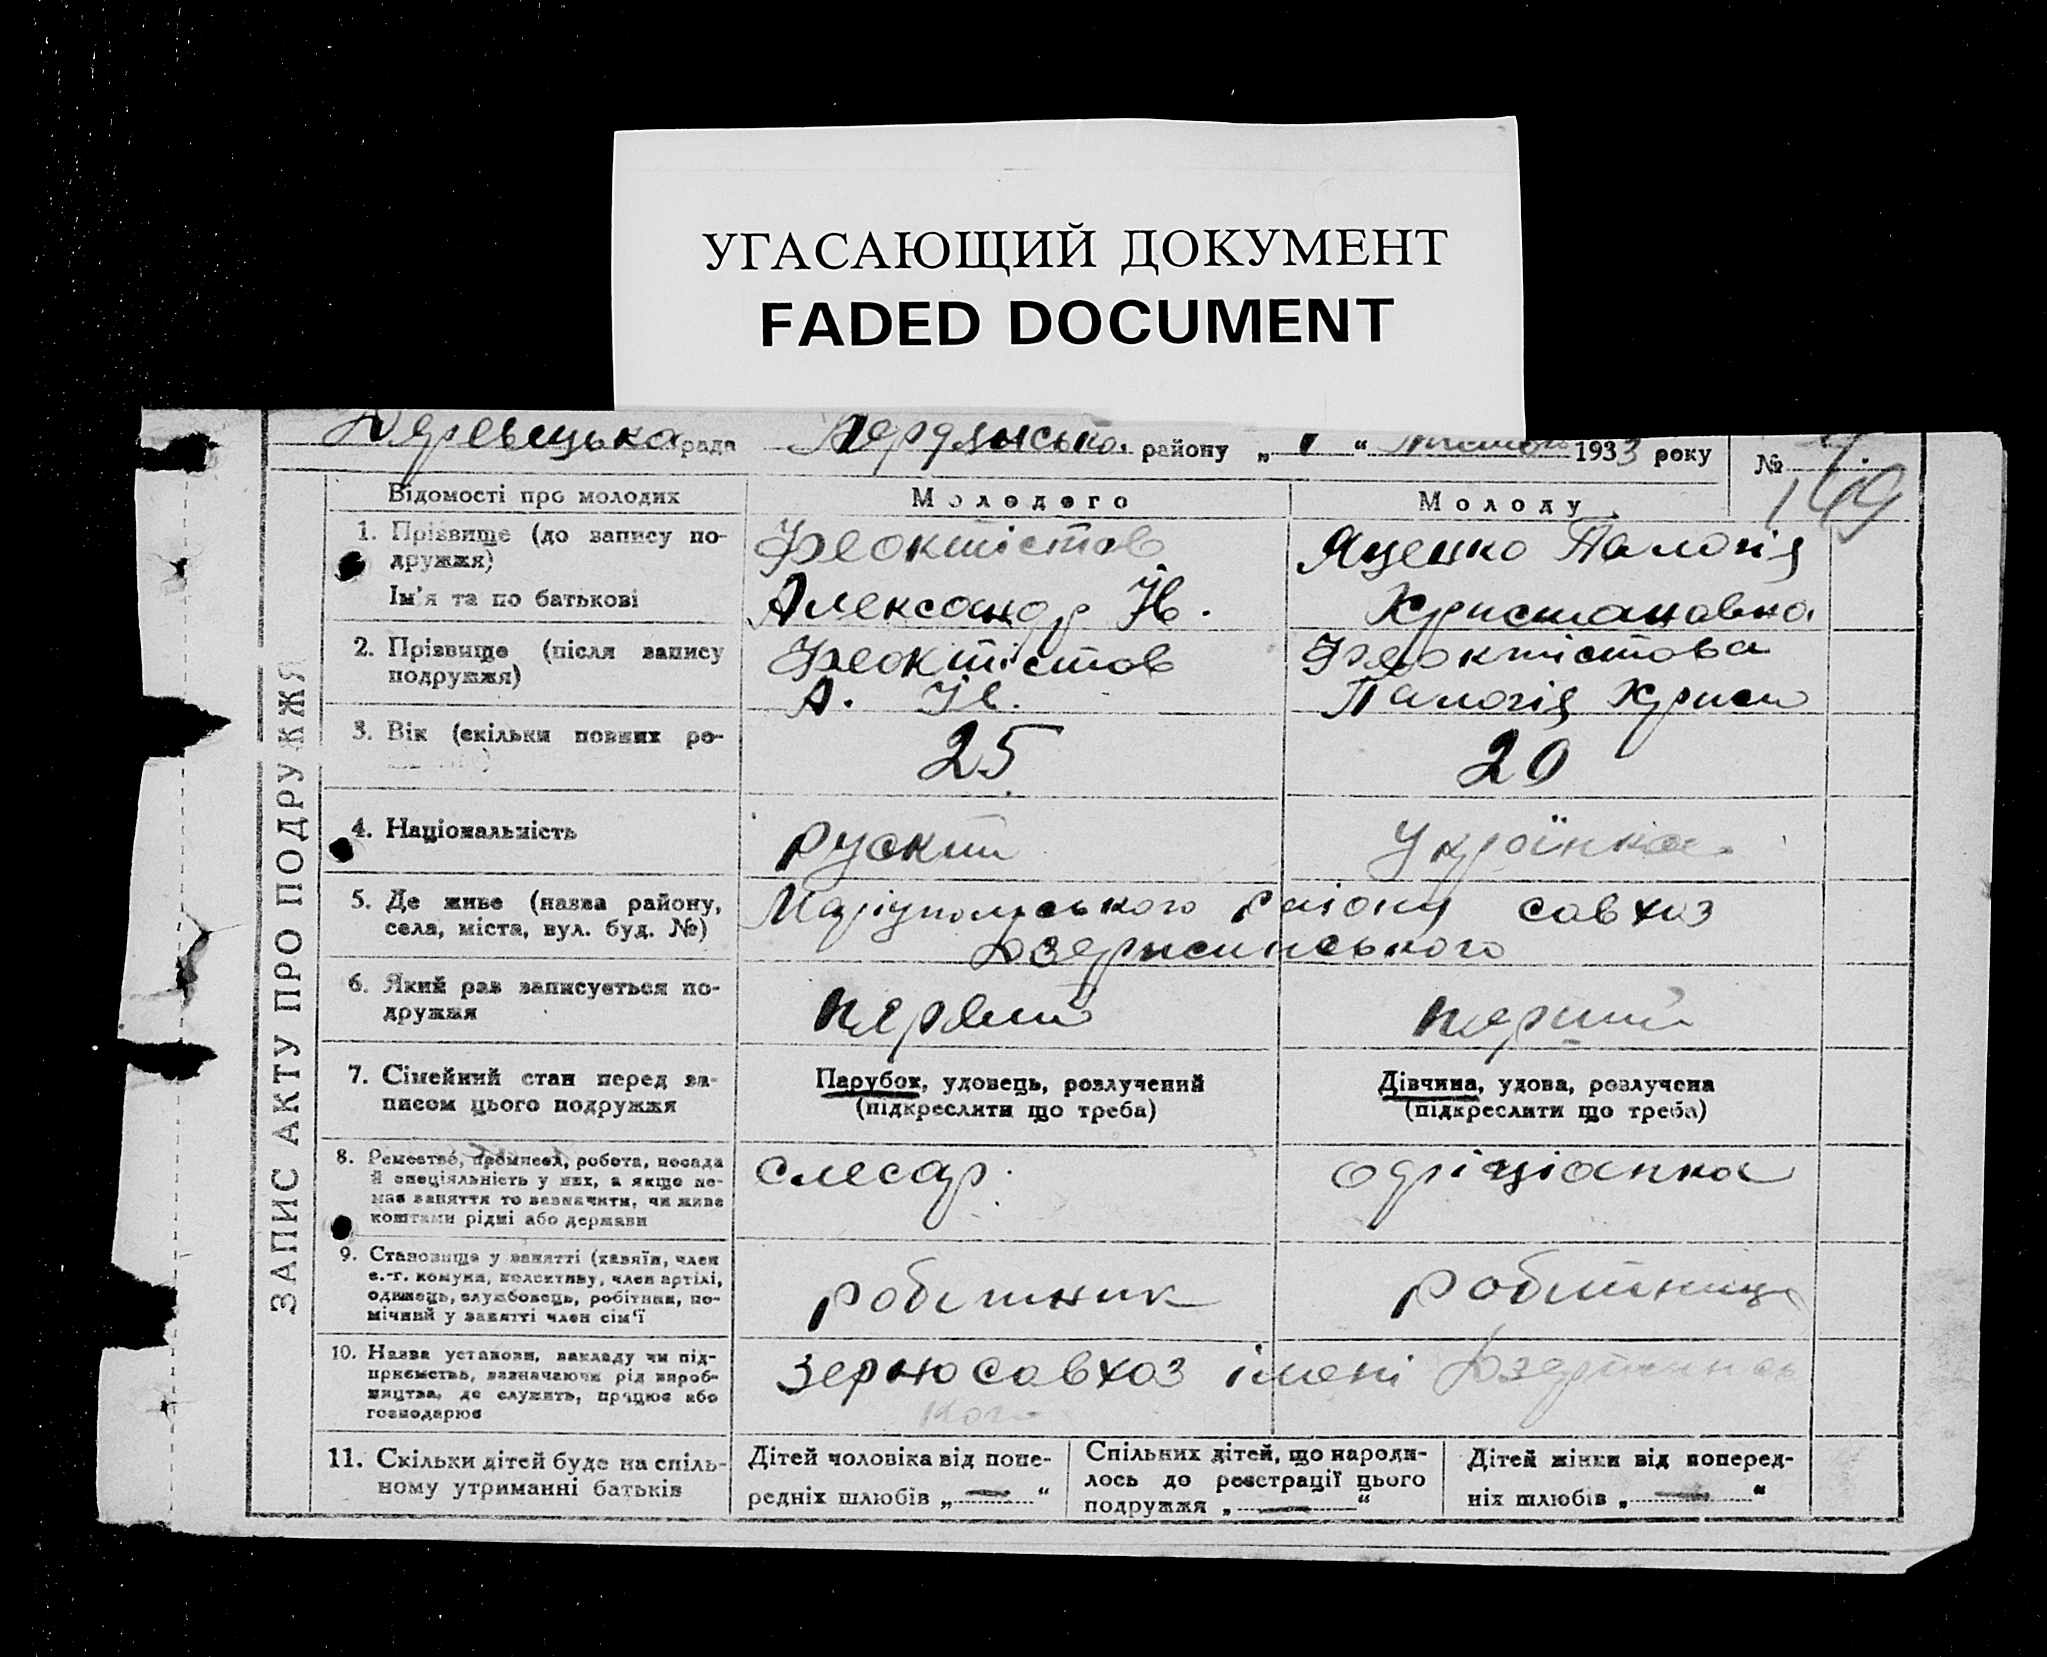 УГАСАЮЩИЙ ДОКУМЕНТ
FADED DOCUMENT
рада району „ 1 “ 1933 року №
149
ЗАПИС АКТУ ПРО ПОДРУЖЖЯ
Відомості про молодих
Молодого
Молоду
1. Прізвище (до запису по-
дружжя)
Ім'я та по батькові
Феоктістов
Александр Ів.
Яценко Палогія
Христановна
2. Прізвище (після запису
подружжя)
Феоктістов
А. Ів.
Феоктістова
Палогія
3. Вік (скільки повних ро-
25
20
4. Національність
руский
Українка
5. Де живе (назва району,
села, міста, вул. буд. №)
Маріупольського району совхоз
6. Який раз записується по-
дружжя
первий
перший
7. Сімейний стан перед за-
писом цього подружжя
Парубок, удовець, розлучений
(підкреслити що треба)
Дівчина, удова, розлучена
(підкреслити що треба)
8. Ремество, промисел, робота, посада
й спеціяльність у них, а якщо не-
має заняття то зазначити, чи живе
коштами рідні або держави
слесар.
офіціанка
9. Становище у занятті (хазяїн, член
с.-г. комуни, колективу, член артілі,
одинець, службовець, робітник, по-
мічний у занятті член сім'ї
робитник
робитниця
10. Назва установи, закладу чи під-
приємства, зазначаючи рід вироб-
ництва, де служить, працює або
господарює
зерносовхоз імені
кого
11. Скільки дітей буде на спіль-
ному утриманні батьків
Дітей чоловіка від попе-
редніх шлюбів „ — “
Спільних дітей, що народи-
лось до реєстрації цього
подружжя „ — “
Дітей жінки від поперед-
ніх шлюбів „ — “